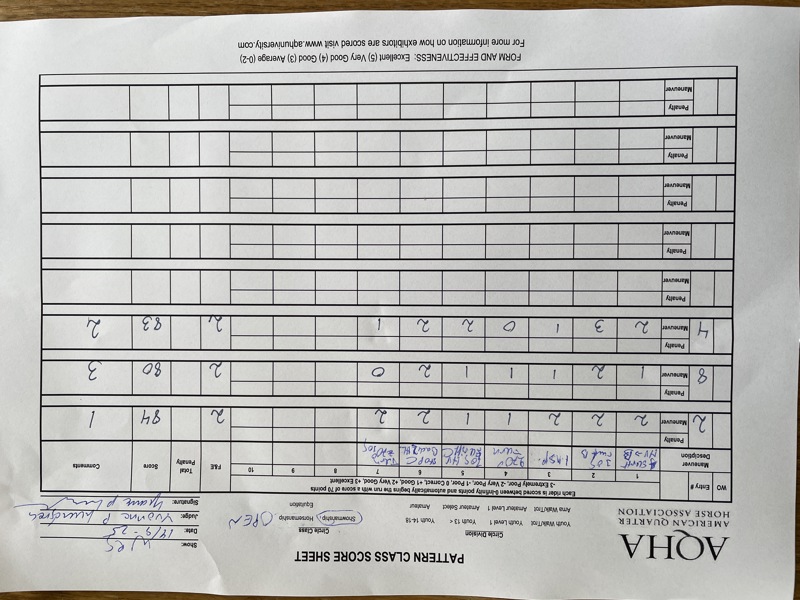 AQHA
AMERICAN QUARTER
HORSE ASSOCIATION
PATTERN CLASS SCORE SHEET
Circle Division
Youth Walk/Trot Youth Level 1 Youth 13 < Youth 14-18
Ama Walk/Trot Amateur Level 1 Amateur Select Amateur
Circle Class
Showmanship Horsemanship OPEN
Equitation
Show: WES
Date: 14/9-25
Judge: Yvonne P
Signature:
Each rider is scored between 0-Infinity points and automatically begins the run with a score of 70 points
-3 Extremely Poor, -2 Very Poor, -1 Poor, 0 Correct, +1 Good, +2 Very Good, +3 Excellent
WO Entry # Maneuver Description 1 2 3 4 5 6 7 8 9 10 F&E Total Penalty Score Comments
INSP. 270° turn
Penalty
2 Maneuver 2 2 2 1 1 2 2 2 84 1
Penalty
8 Maneuver 1 2 1 1 1 2 0 2 80 3
Penalty
4 Maneuver 2 3 1 0 2 2 1 2 83 2
Penalty
Maneuver
Penalty
Maneuver
Penalty
Maneuver
Penalty
Maneuver
Penalty
Maneuver
FORM AND EFFECTIVENESS: Excellent (5) Very Good (4) Good (3) Average (0-2)
For more information on how exhibitors are scored visit www.aqhuniversity.com